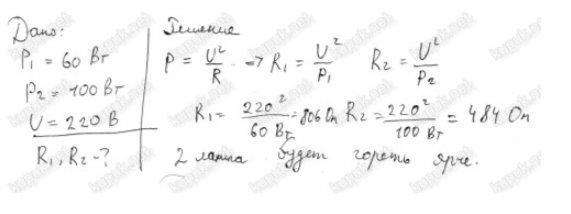 Дано:
P₁ = 60 Вт
P₂ = 100 Вт
U = 220 В
R₁, R₂ - ?
Решение
P = U²/R => R₁ = U²/P₁ R₂ = U²/P₂
R₁ = 220²/60 Вт = 806 Ом R₂ = 220²/100 Вт = 484 Ом
2 лампа будет гореть ярче.